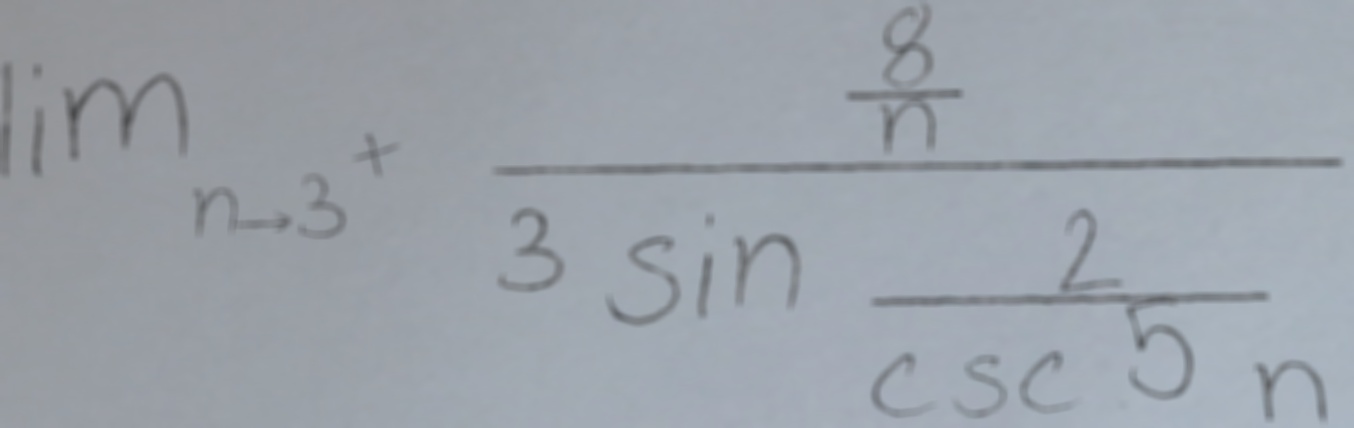 \lim_{n \to 3^+} \frac{\frac{8}{n}}{3 \sin \frac{2}{\csc^5 n}}